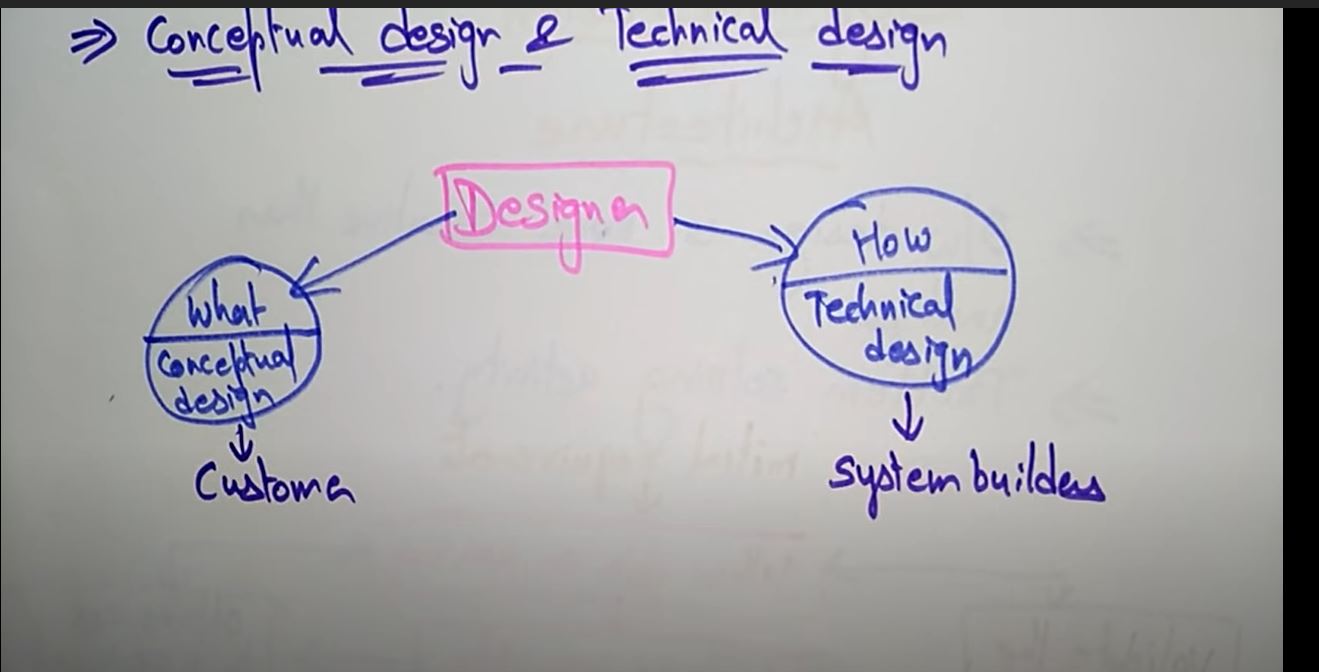 ⇒ Conceptual design & Technical design
Designer
What
Conceptual
design
Customer
How
Technical
design
System builders